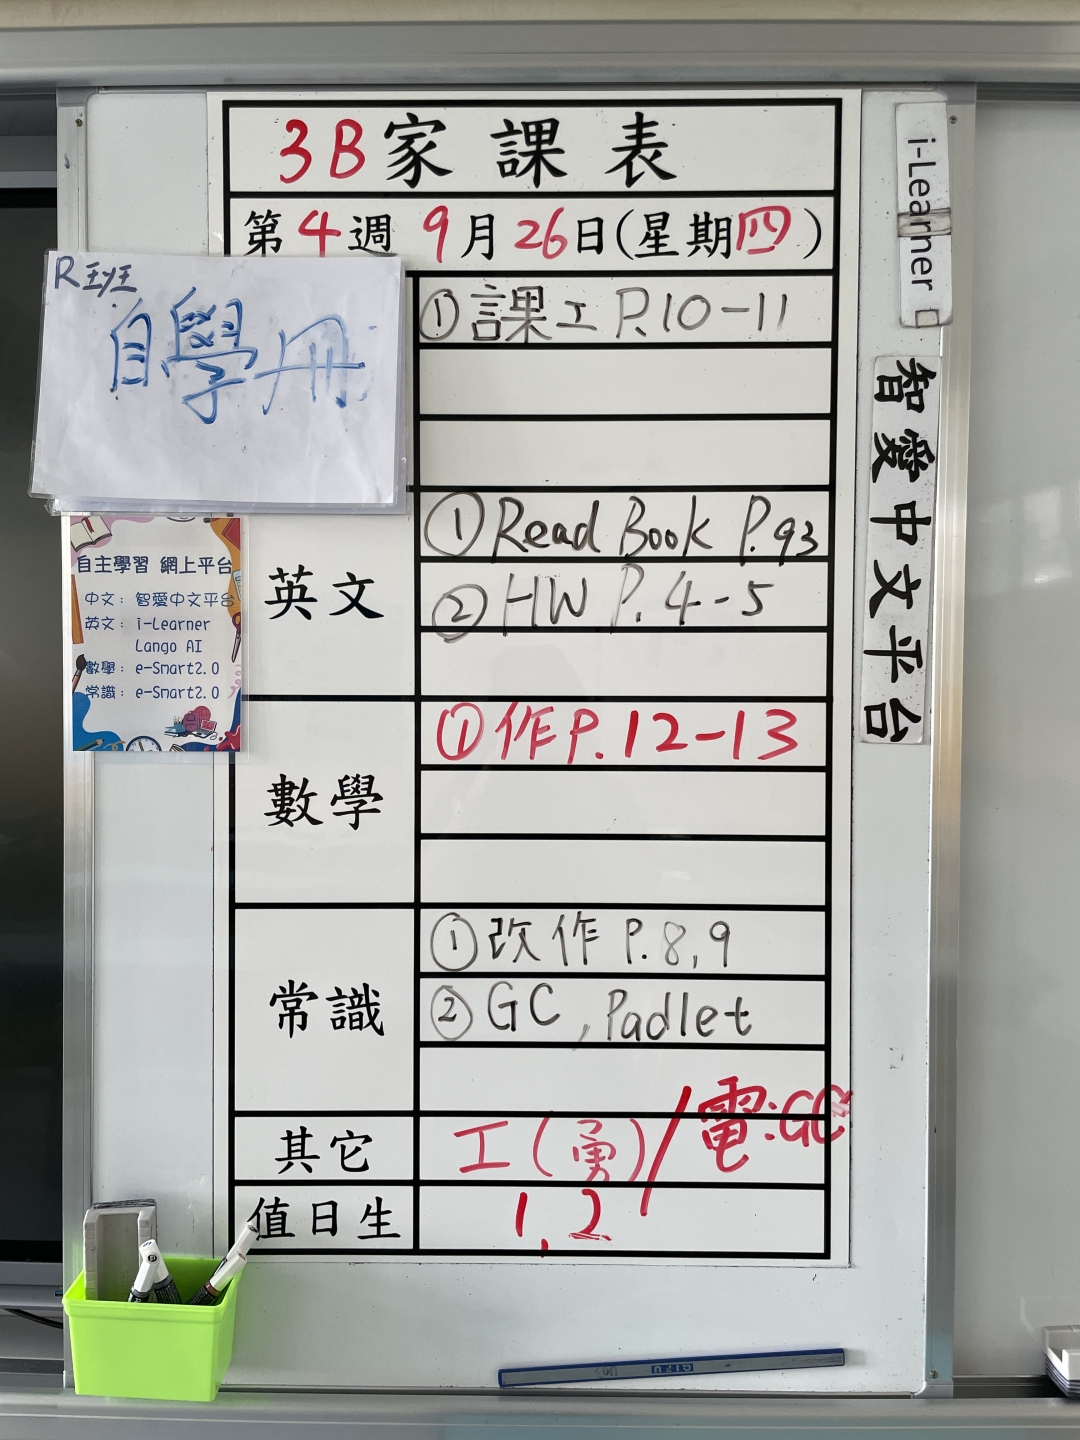 3B家課表
第4週 9月26日(星期四)
R班
自學冊
①課工 P.10-11
英文
①Read Book P.93
②HW P.4-5
數學
①作P.12-13
常識
①改作 P.8,9
②GC, Padlet
其它
工(勇)/電:GC
值日生
1,2
自主學習 網上平台
中文: 智愛中文平台
英文: i-Learner
Lango AI
數學: e-Smart2.0
常識: e-Smart2.0
i-Learner
智愛中文平台